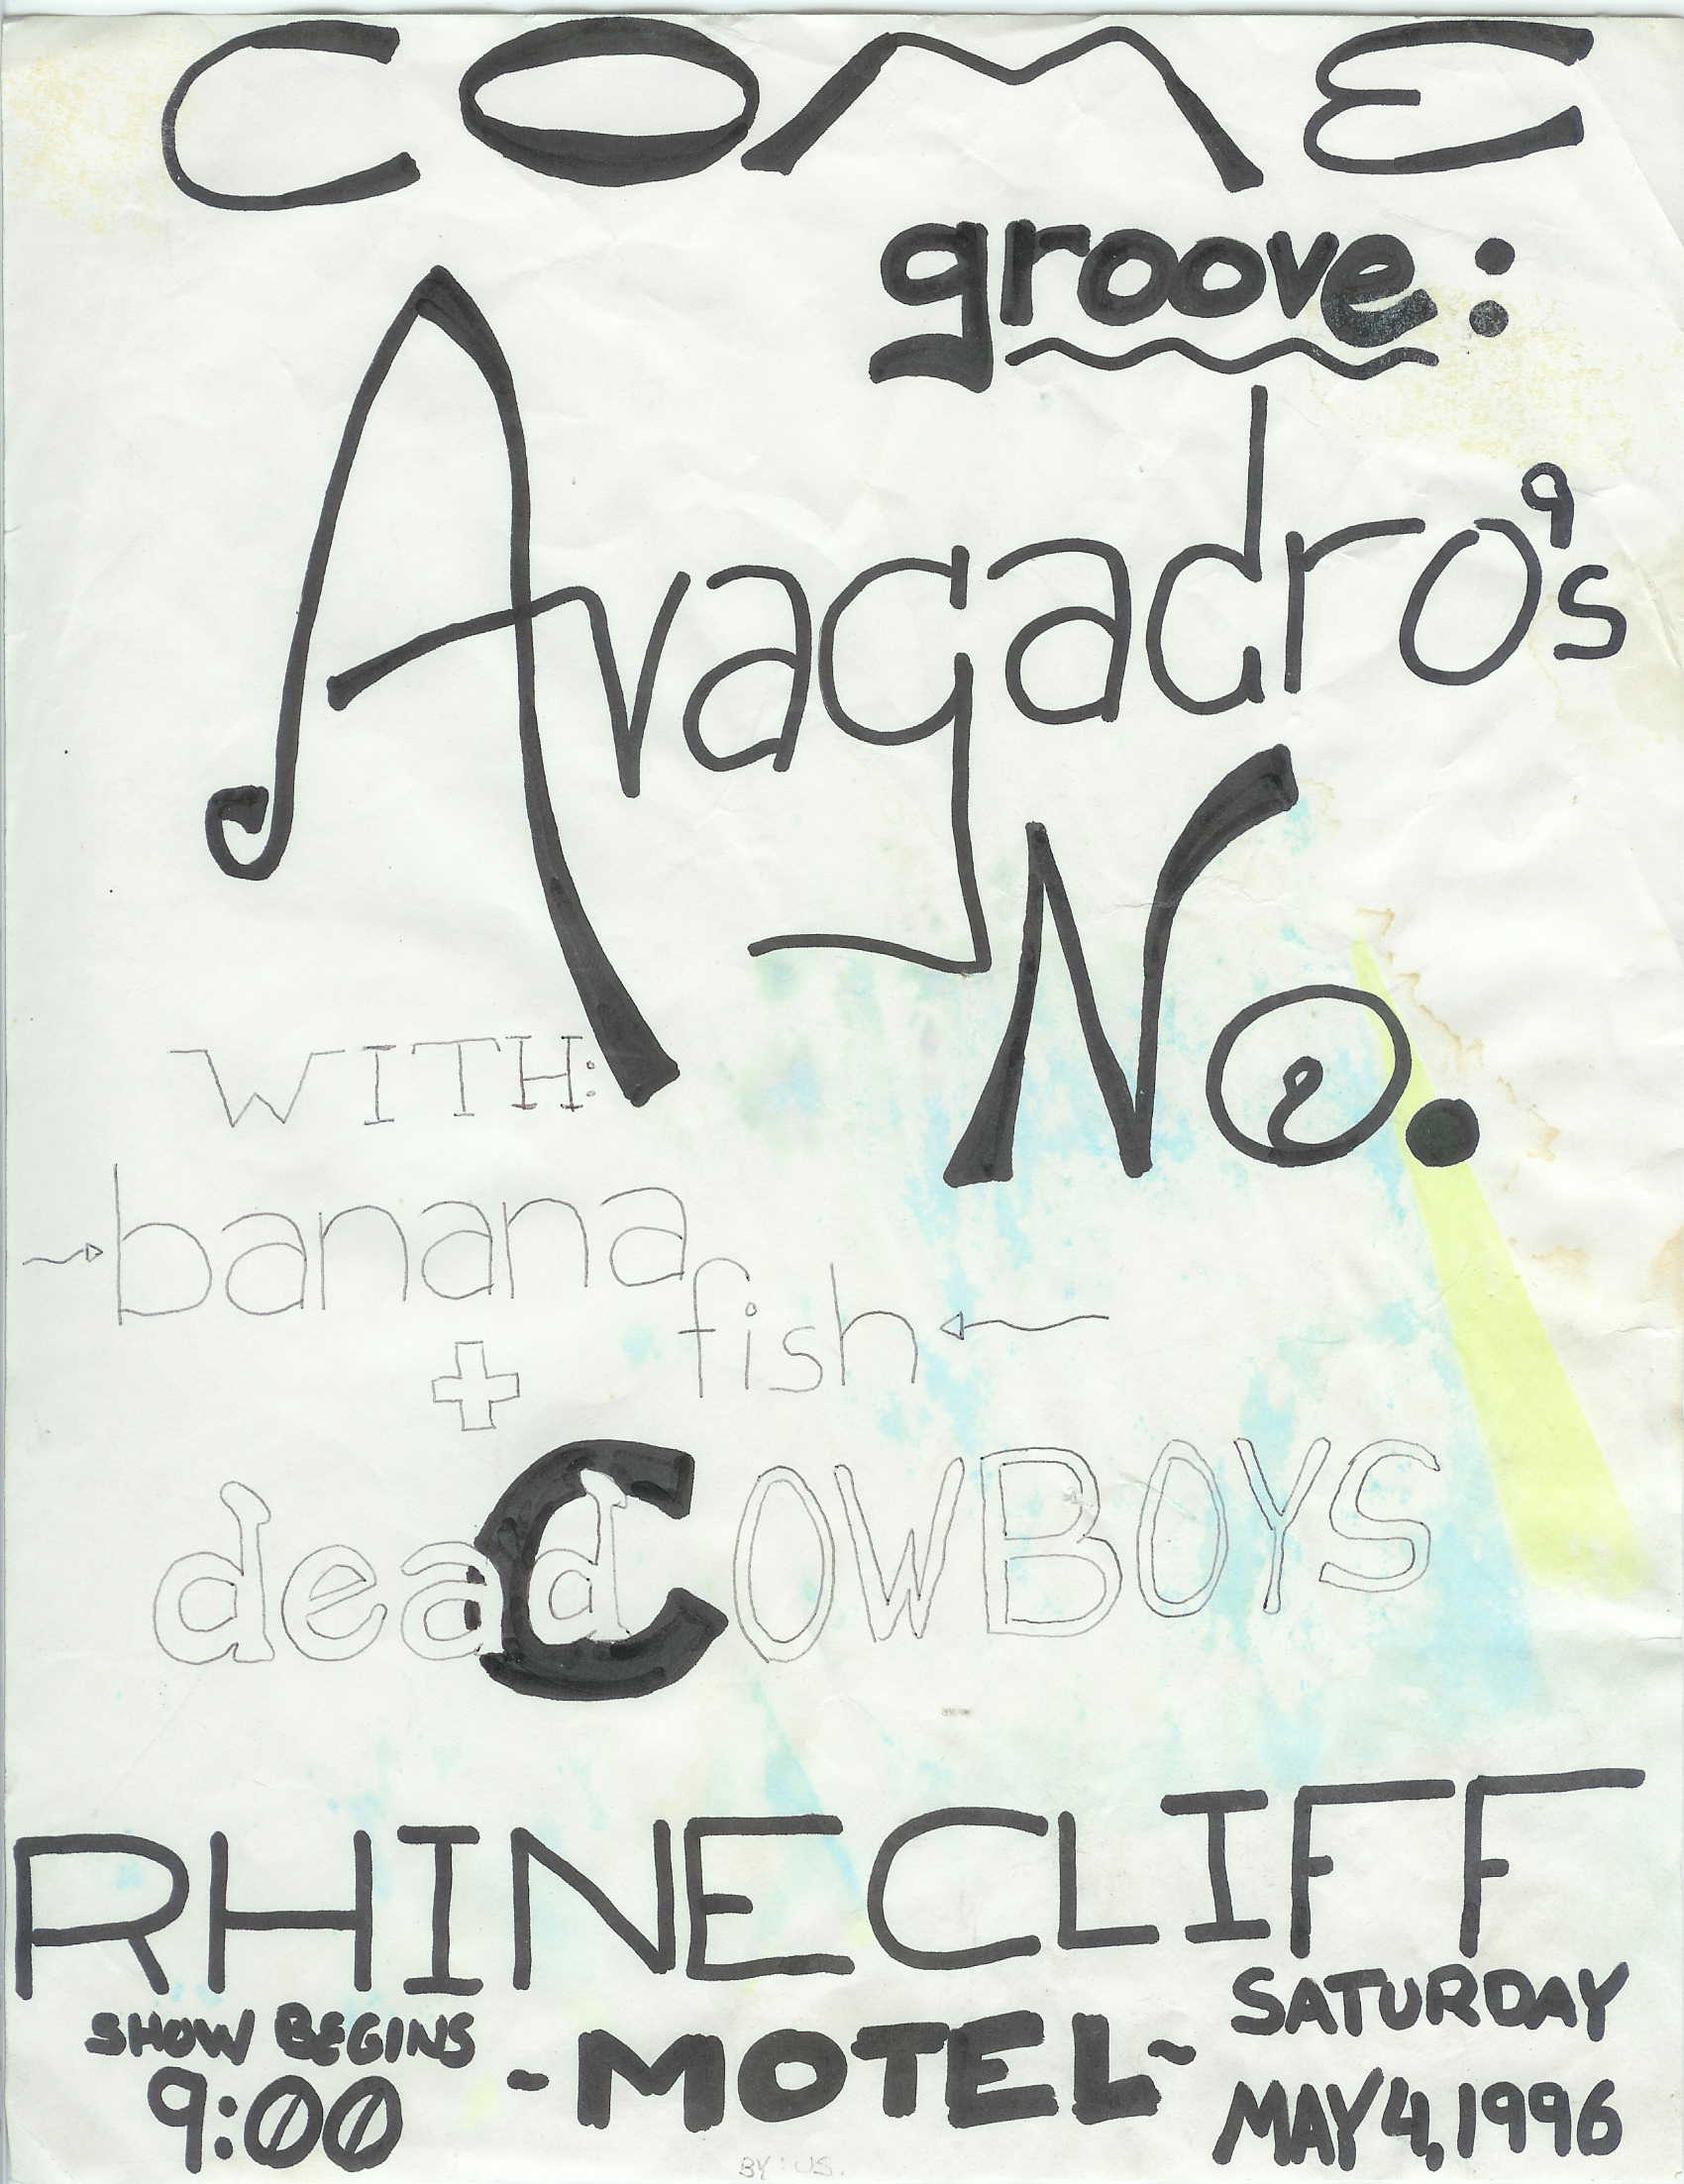 COME
groove:
Avagadro's
No.
WITH:
banana
fish
+
dead COWBOYS
RHINECLIFF
SHOW BEGINS
9:00
-MOTEL~
SATURDAY
MAY 4, 1996
BY: US.